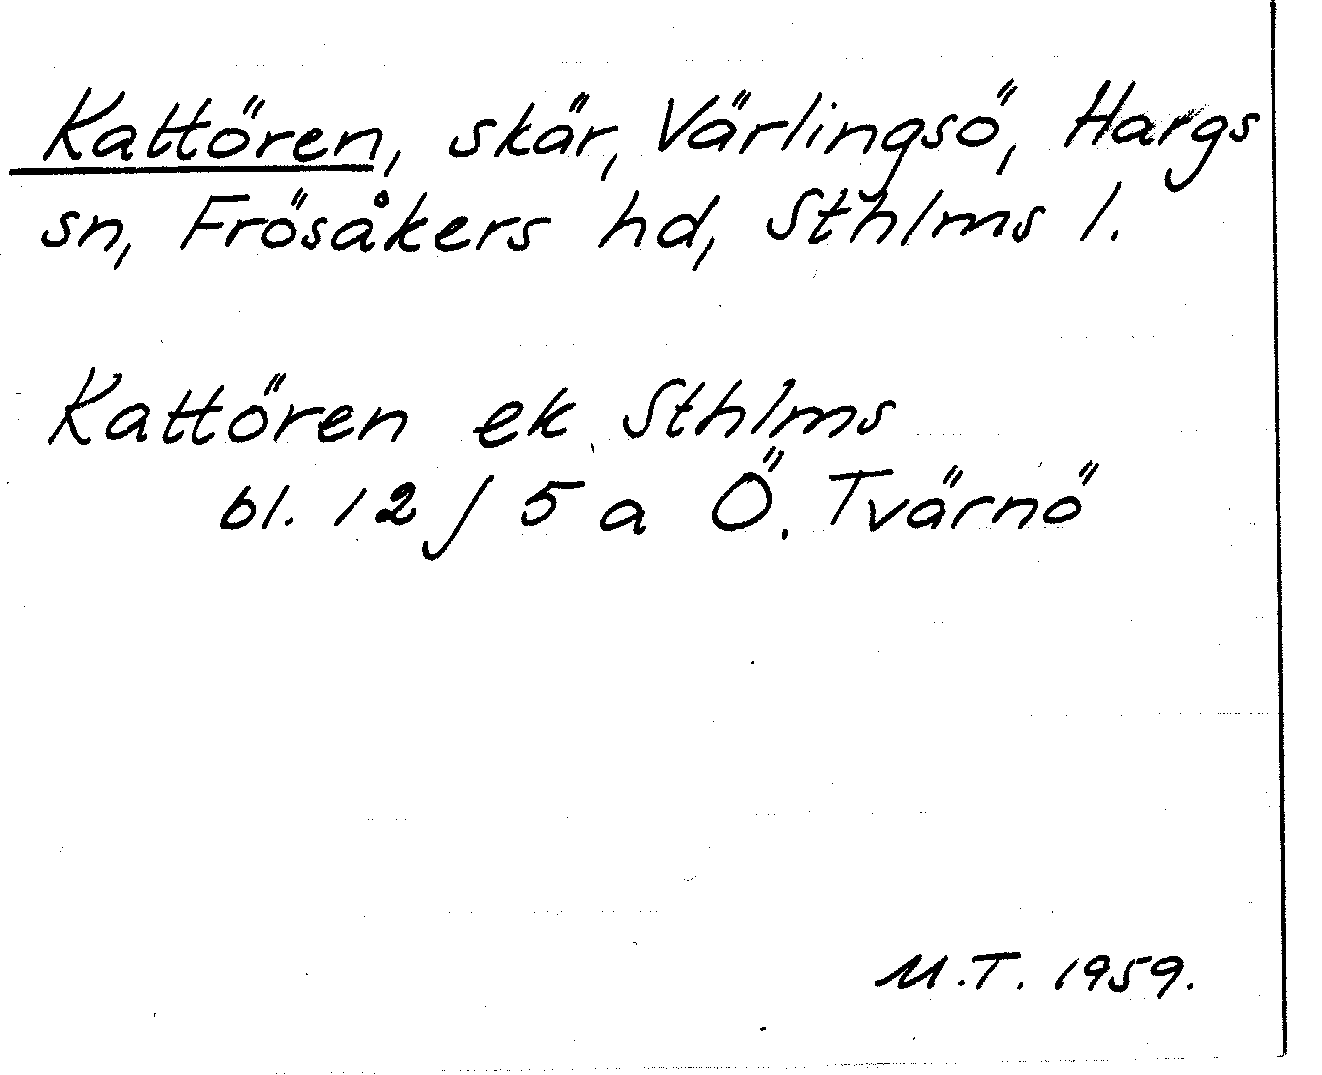 Kattören, skär, Värlingsö, Hargs
sn, Frösåkers hd, Sthlms l.
Kattören ek Sthlms
bl. 12 J 5 a Ö. Tvärnö
M.T. 1959.